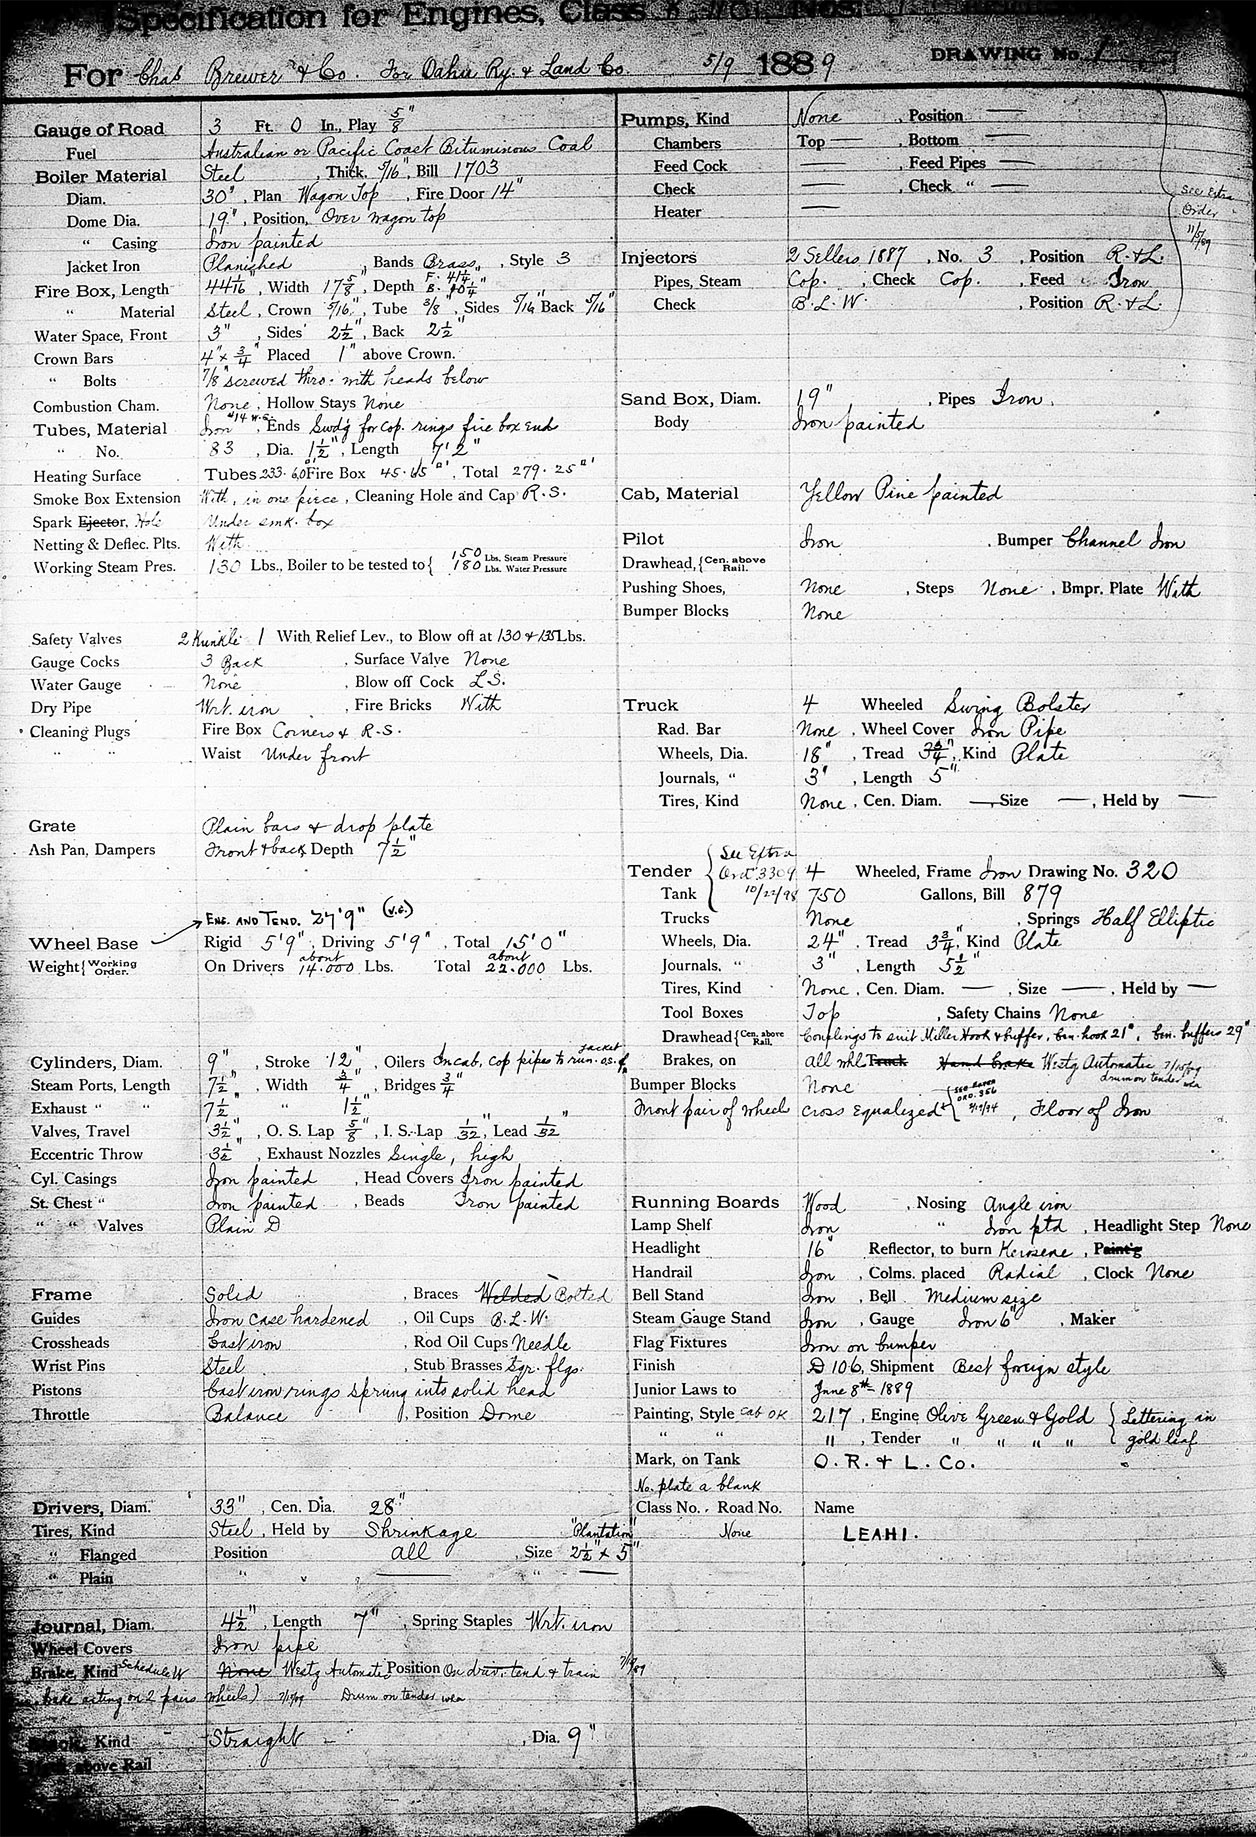 Specification for Engines, Class
DRAWING No. 1
For Chas Brewer & Co. For Oahu Ry. & Land Co. 5/9 1889
Gauge of Road 3 Ft. 0 In., Play 5/8"
Fuel Australian or Pacific Coast Bituminous Coal
Boiler Material Steel , Thick. 5/16", Bill 1703
Diam. 30", Plan Wagon Top , Fire Door 14"
Dome Dia. 19", Position, Over wagon top
" Casing Iron painted
Jacket Iron Planished , Bands Brass , Style 3
Fire Box, Length 44 7/16", Width 17 5/8", Depth F. 41 1/4" B. 40 1/4"
" Material Steel, Crown 5/16", Tube 3/8", Sides 5/16" Back 5/16"
Water Space, Front 3", Sides 2 1/2", Back 2 1/2"
Crown Bars 4" x 3/4" Placed 1" above Crown.
" Bolts 7/8" screwed thro. with heads below
Combustion Cham. None, Hollow Stays None
Tubes, Material Iron #14 W.G., Ends Swdg for cop. rings fire box end
" No. 83 , Dia. 1 1/2", Length 7' 2"
Heating Surface Tubes 233.60 Fire Box 45.65 □', Total 279.25 □'
Smoke Box Extension With, in one piece, Cleaning Hole and Cap R.S.
Spark Ejector, Hole Under smk. box
Netting & Deflec. Plts. With
Working Steam Pres. 130 Lbs., Boiler to be tested to { 150 Lbs. Steam Pressure 180 Lbs. Water Pressure
Safety Valves 2 Kunkle 1 With Relief Lev., to Blow off at 130 & 135 Lbs.
Gauge Cocks 3 Back , Surface Valve None
Water Gauge None , Blow off Cock L.S.
Dry Pipe Wrt. iron , Fire Bricks With
Cleaning Plugs Fire Box Corners & R.S.
" " Waist Under front
Grate Plain bars & drop plate
Ash Pan, Dampers Front & back Depth 7 1/2"
ENG. AND TEND. 27'9" (V.G.)
Wheel Base Rigid 5'9", Driving 5'9", Total 15'0"
Weight { Working Order. On Drivers about 14.000 Lbs. Total about 22.000 Lbs.
Cylinders, Diam. 9", Stroke 12", Oilers In cab, cop pipes to run. as. jacket
Steam Ports, Length 7 1/2", Width 3/4", Bridges 3/4"
Exhaust " " 7 1/2" " 1 1/2"
Valves, Travel 3 1/2", O. S. Lap 5/8", I. S. Lap 1/32", Lead 1/32"
Eccentric Throw 3 1/2", Exhaust Nozzles Single, high
Cyl. Casings Iron painted , Head Covers Iron painted
St. Chest " Iron painted , Beads Iron painted
" " Valves Plain D
Frame Solid , Braces Welded Bolted
Guides Iron case hardened , Oil Cups B.L.W.
Crossheads Cast iron , Rod Oil Cups Needle
Wrist Pins Steel , Stub Brasses Sqr. flgs.
Pistons Cast iron rings spring into solid head
Throttle Balance , Position Dome
Drivers, Diam. 33", Cen. Dia. 28"
Tires, Kind Steel, Held by Shrinkage "Plantation"
" Flanged Position all , Size 2 1/2" x 5"
" Plain " " — " —
Journal, Diam. 4 1/2", Length 7", Spring Staples Wrt. iron
Wheel Covers Iron pipe
Brake, Kind Schedule W None Westg Automatic Position On driv. tend & train 7/15/09
acting on 2 pairs wheels) 7/15/09 Drum on tender
Kind Straight , Dia. 9"
above Rail
Pumps, Kind None , Position —
Chambers Top — , Bottom —
Feed Cock — , Feed Pipes —
Check — , Check " —
Heater —
See Extra Order 11/5/89
Injectors 2 Sellers 1887 , No. 3 , Position R. & L.
Pipes, Steam Cop. , Check Cop. , Feed Iron
Check B.L.W. , Position R. & L.
Sand Box, Diam. 19" , Pipes Iron.
Body Iron painted
Cab, Material Yellow Pine painted
Pilot Iron , Bumper Channel Iron
Drawhead, { Cen. above Rail.
Pushing Shoes, None , Steps None , Bmpr. Plate With
Bumper Blocks None
Truck 4 Wheeled Swing Bolster
Rad. Bar None , Wheel Cover Iron Pipe
Wheels, Dia. 18" , Tread 3 3/4", Kind Plate
Journals, " 3" , Length 5"
Tires, Kind None , Cen. Diam. —, Size —, Held by —
See Extra Ord 3309 10/22/98
Tender 4 Wheeled, Frame Iron Drawing No. 320
Tank 750 Gallons, Bill 879
Trucks None , Springs Half Elliptic
Wheels, Dia. 24" , Tread 3 3/4", Kind Plate
Journals, " 3" , Length 5 1/2"
Tires, Kind None , Cen. Diam. — , Size — , Held by —
Tool Boxes Top , Safety Chains None
Drawhead { Cen. above Rail. Couplings to suit Miller Hook & buffer, Cen. hook 21", Cen. buffers 29"
Brakes, on all whl Truck Hand brake Westg Automatic 7/15/09 drum on tender
Bumper Blocks None
Front pair of wheels cross Equalized , Floor of Iron
Running Boards Wood , Nosing Angle iron
Lamp Shelf Iron " Iron ptd , Headlight Step None
Headlight 16" Reflector, to burn Kerosene , Paint'g
Handrail Iron , Colms. placed Radial , Clock None
Bell Stand Iron , Bell Medium size
Steam Gauge Stand Iron , Gauge Iron 6" , Maker
Flag Fixtures Iron on bumper
Finish D 106, Shipment Best foreign style
Junior Laws to June 8th - 1889
Painting, Style Cab OK 217 , Engine Olive Green & Gold { Lettering in
" " " , Tender " " " " { gold leaf
Mark, on Tank O. R. & L. Co.
No. plate a blank
Class No. . Road No. Name
None LEAHI.